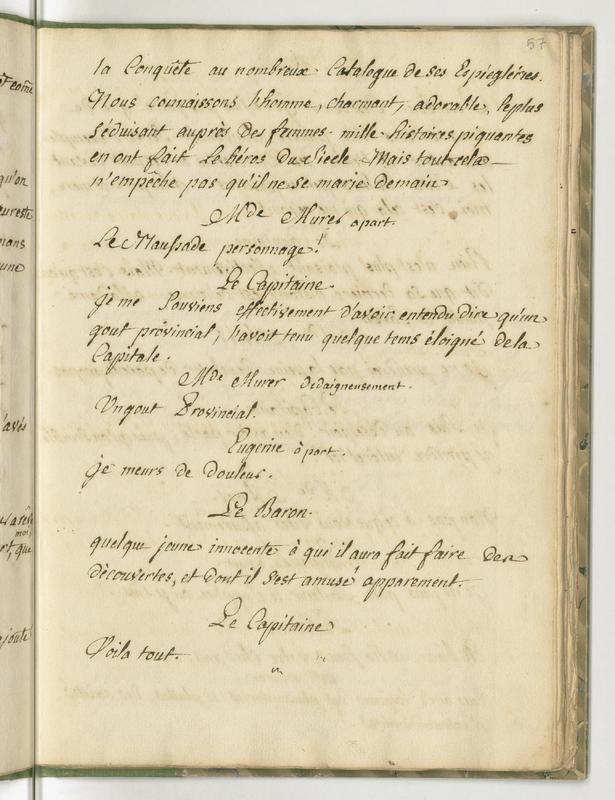 57
la Conquête au nombreux Catalogue de ses Espiegléries.
Nous connaissons l'homme, charmant, adorable, leplus
séduisant auprès des femmes. mille histoires piquantes
en ont fait le héros du Siecle Mais tout cela
n'empêche pas qu'il ne se marie demain
Mde Murer apart.
Le Maussade personnage!
Le Capitaine.
je me souviens effectivement d'avoir entendu dire qu'un
gout provincial, l'avoit tenu quelque tems éloigné dela
Capitale.
Mde Murer dedaigneusement.
Un gout Provincial.
Eugenie à part.
je meurs de douleur.
Le Baron.
quelque jeune innocente à qui il aura fait faire des
découvertes, et dont il s'est amusé apparement.
Le Capitaine
Voila tout.
qu'on
mans
une
moi,
ajouté